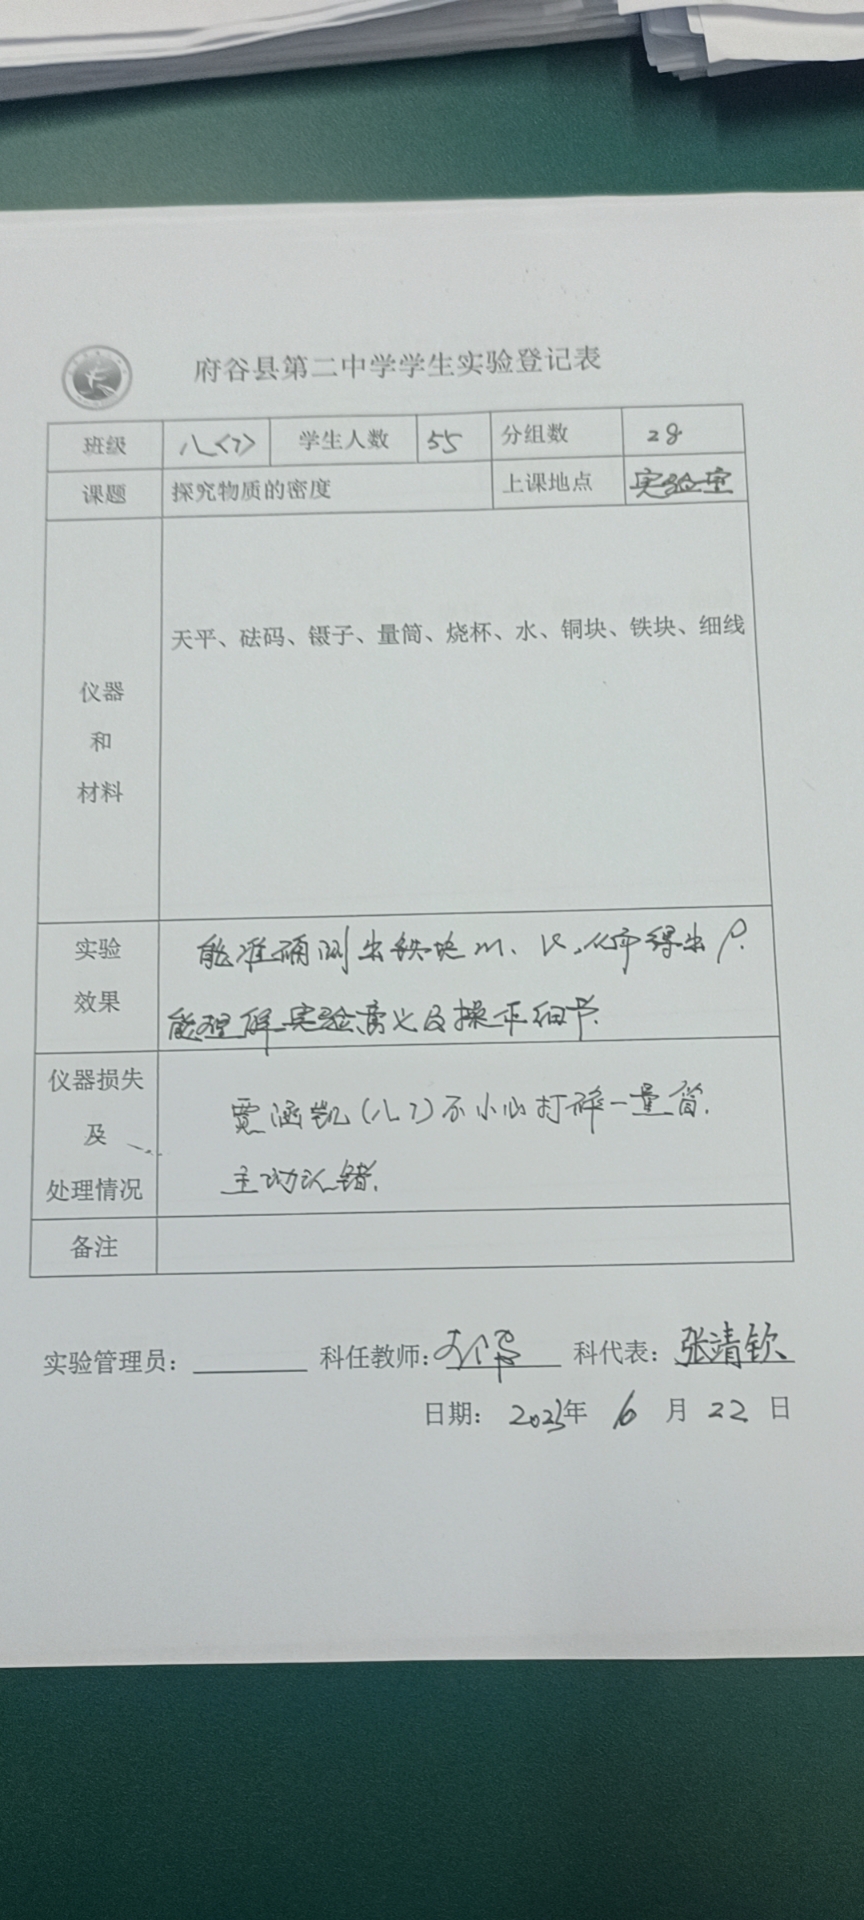 府谷县第二中学学生实验登记表
班级 八<7> 学生人数 55 分组数 28
课题 探究物质的密度 上课地点 实验室
天平、砝码、镊子、量筒、烧杯、水、铜块、铁块、细线
仪器
和
材料
实验
效果
能准确测出铁块m、V,从而得出ρ.
能理解实验意义及操作细节.
仪器损失
及
处理情况
涵凯(八7)不小心打碎一量筒.
主动认错.
备注
实验管理员: 科任教师: 科代表: 张靖钦
日期: 2023年 6 月 22 日